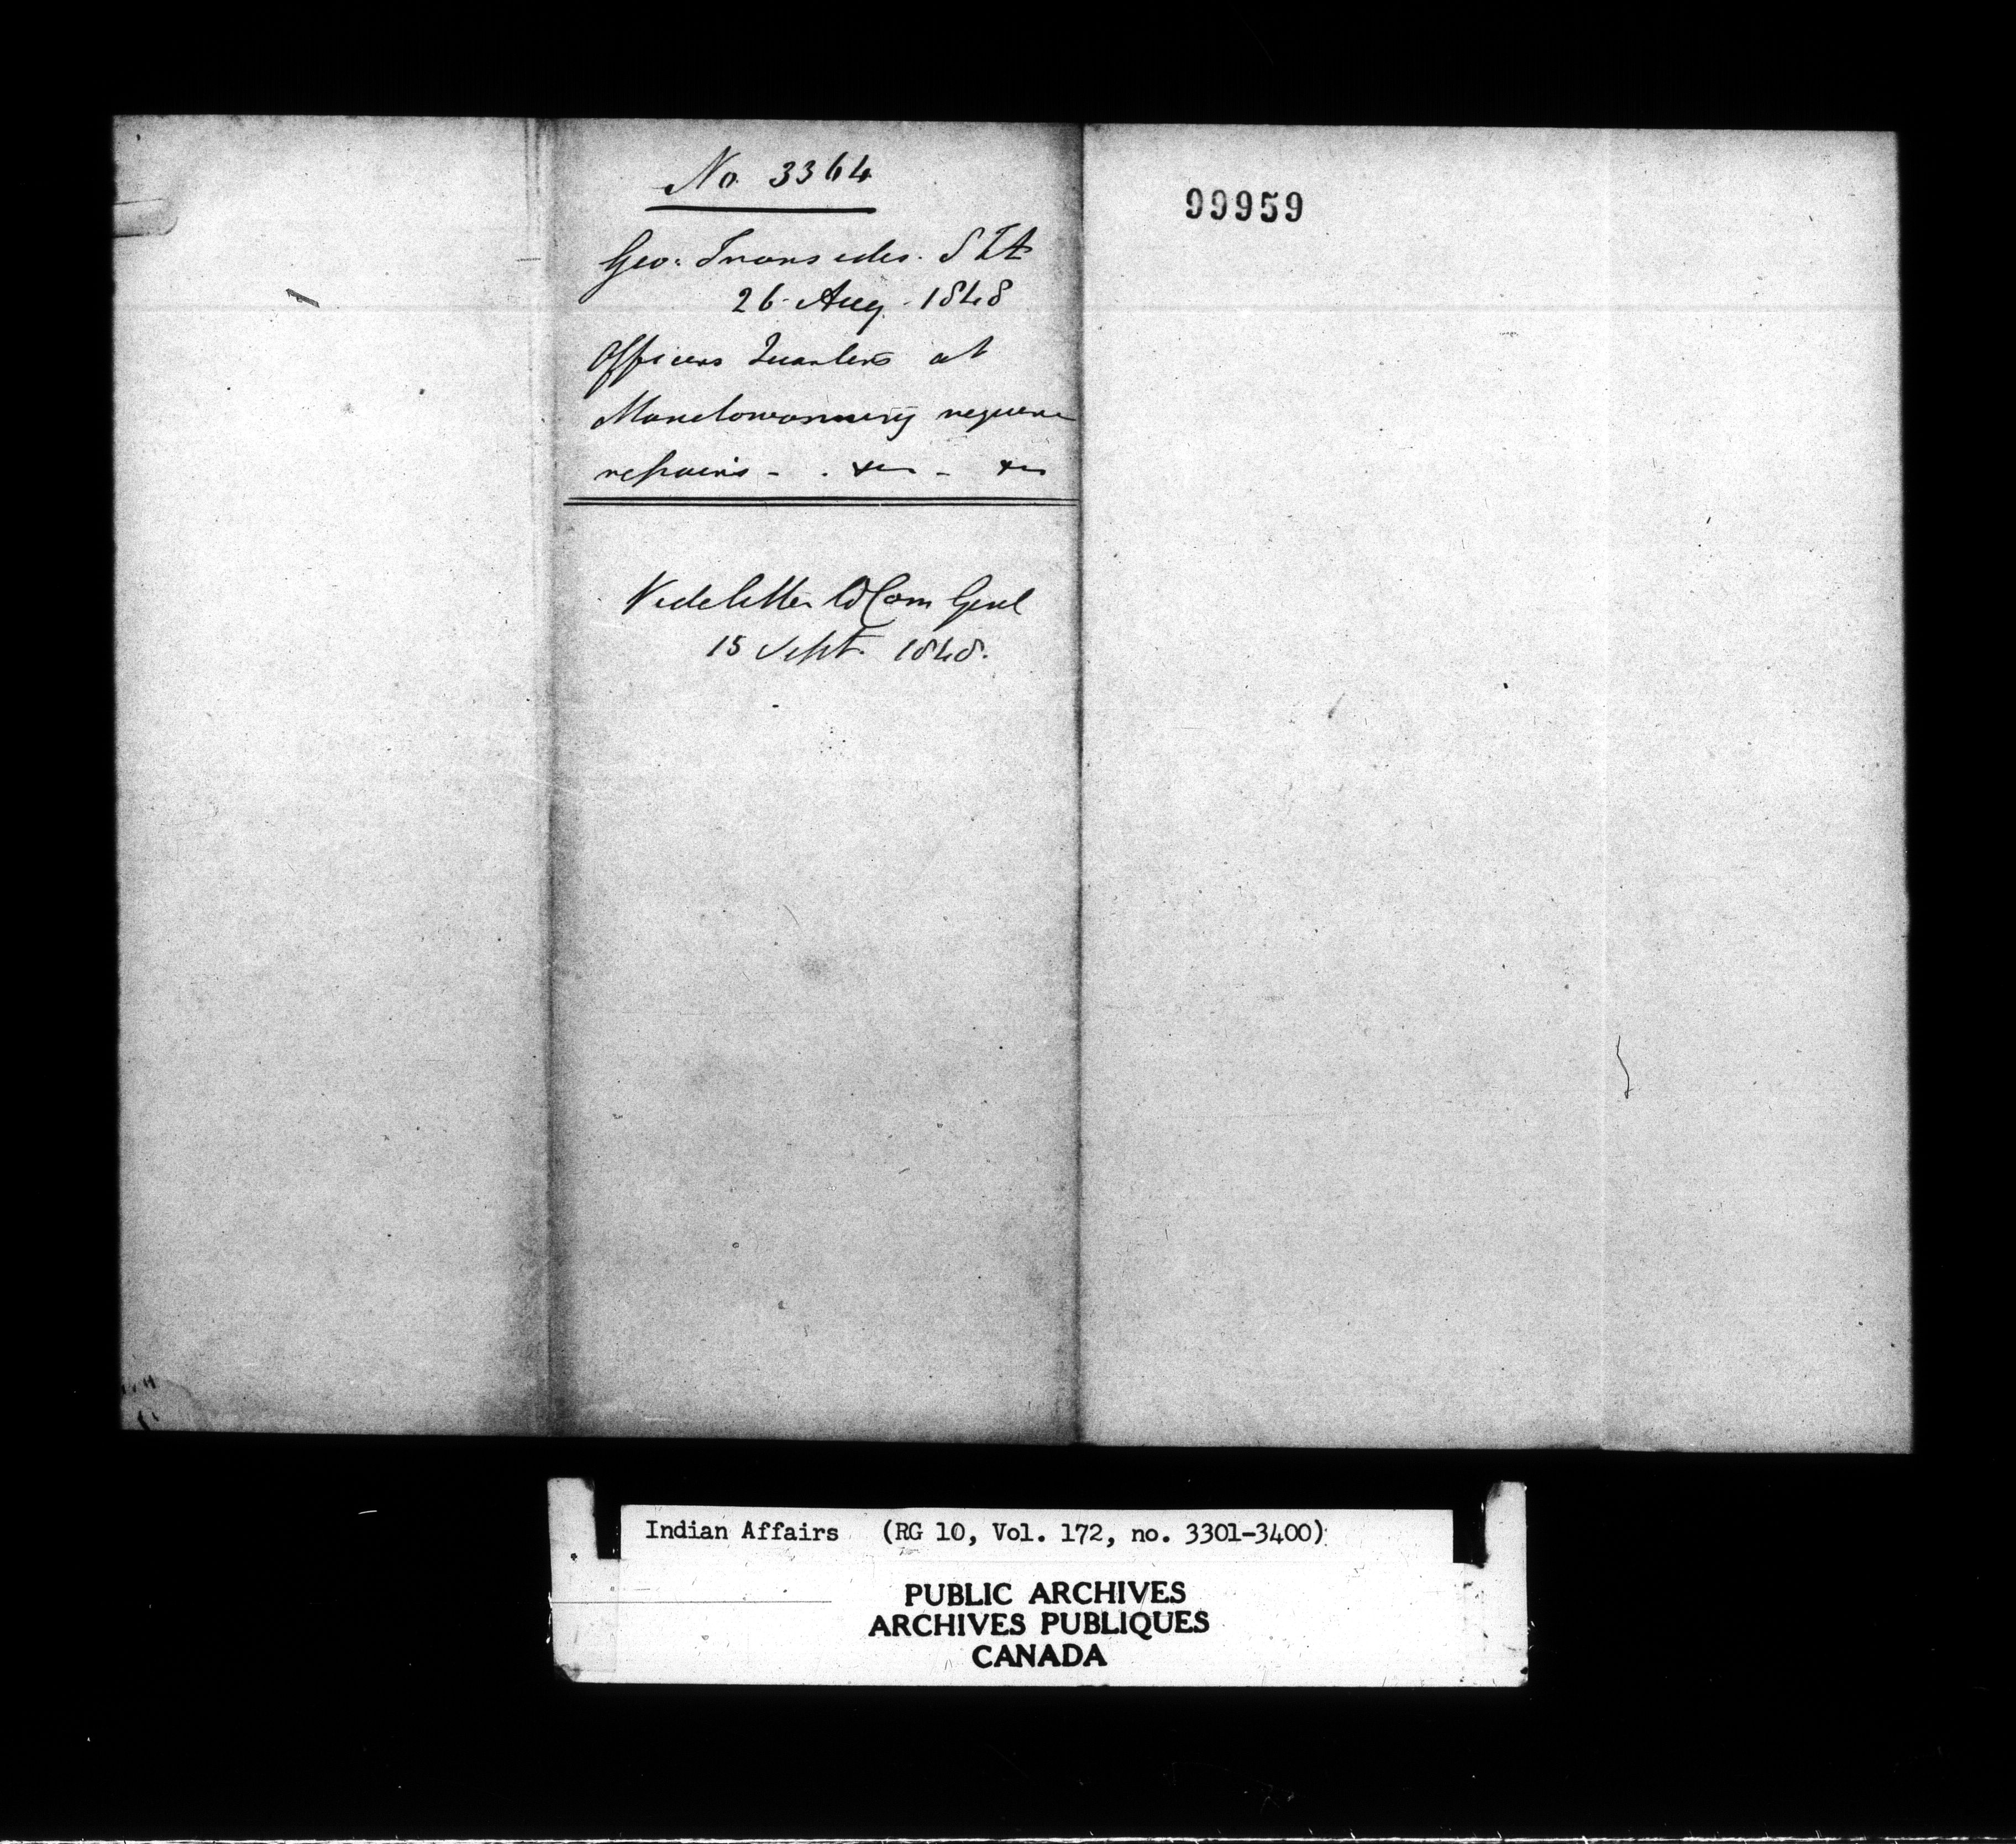 No 3364
Geo: Ironsides. SIA
26 Aug. 1848
Officers Quarters at
Manetowanning require
repairs - . &c - &c
Vide letter to Com Genl
15 Sept. 1848.
99959
Indian Affairs (RG 10, Vol. 172, no. 3301-3400)
PUBLIC ARCHIVES
ARCHIVES PUBLIQUES
CANADA